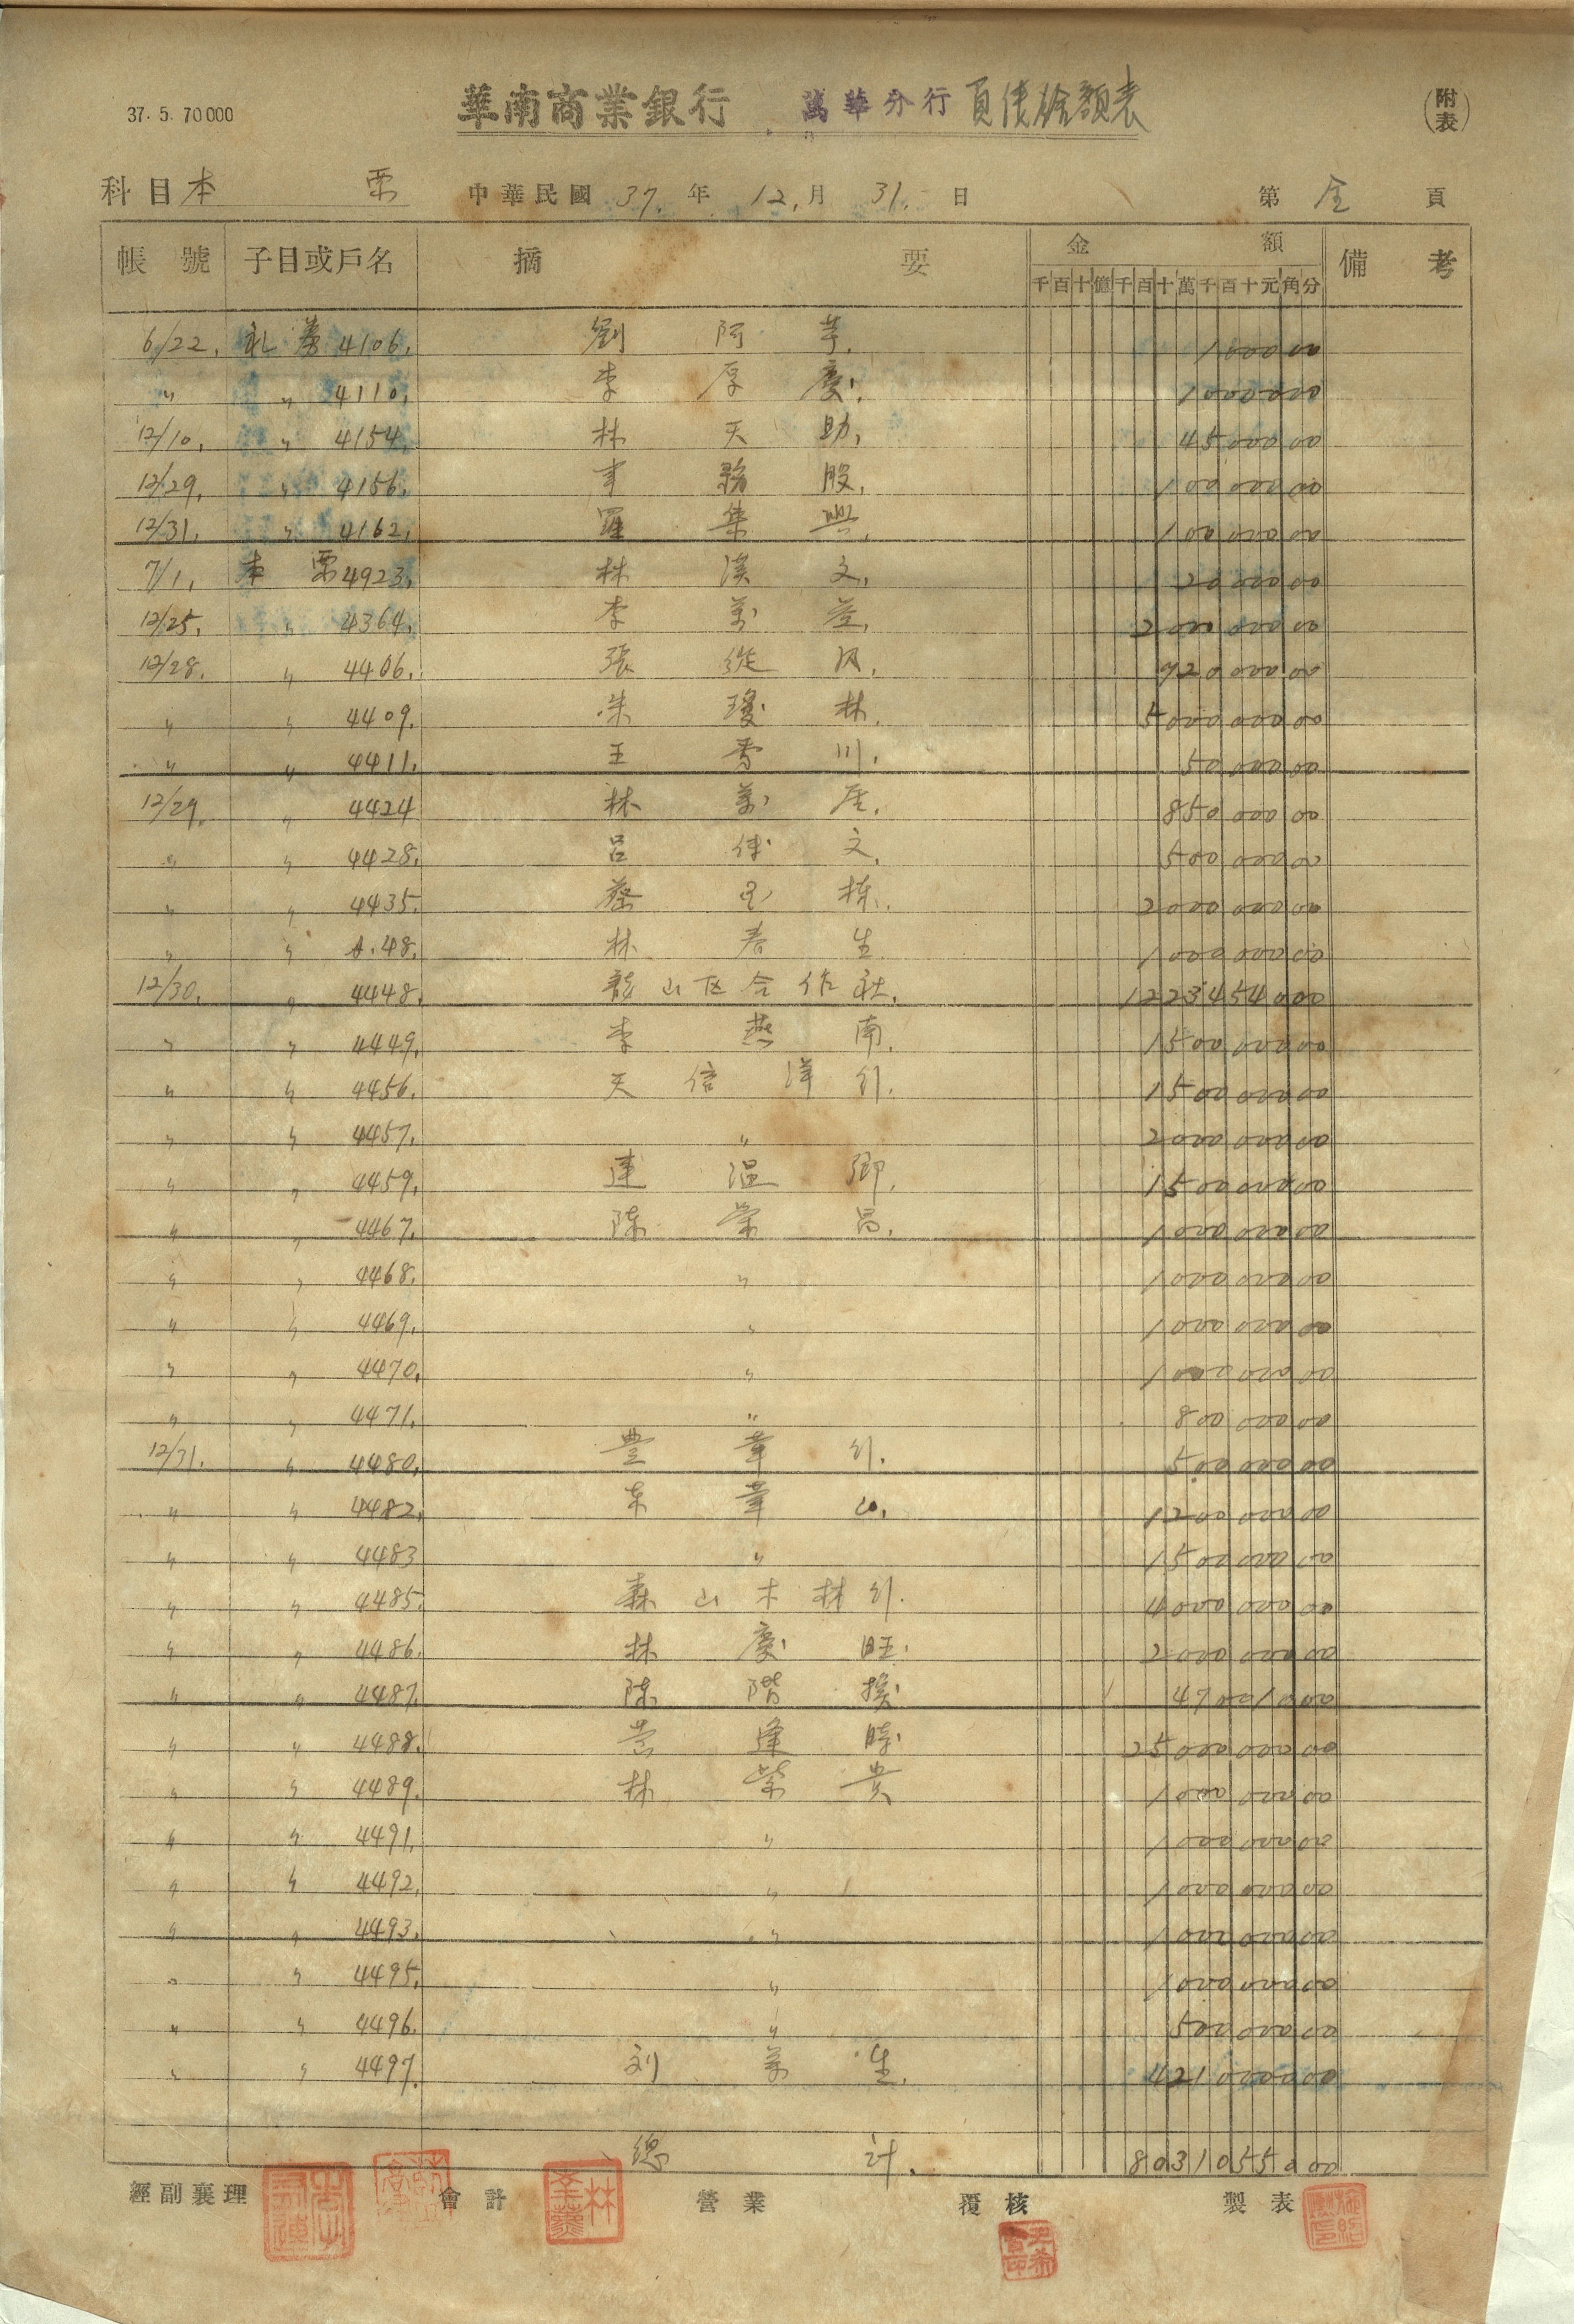 37. 5. 70000
華南商業銀行 萬華分行 負債餘額表
(附表)
科目 本 票 中華民國 37. 年 12. 月 31. 日 第 全 頁
帳號 子目或戶名 摘要 金額 備考
千百十億千百十萬千百十元角分
6/22. 4106. 劉阿 1000 00
〃 〃 4110. 李厚慶. 10000 00
12/10. 〃 4154. 林天助. 45000 00
12/29. 〃 4156. 事務股. 100000 00
12/31. 〃 4162. 羅集興. 100000 00
7/1. 本票 4923. 林漢文. 20000 00
12/25. 〃 4364. 李萬 2000000 00
12/28. 〃 4406. 張從 920000 00
〃 〃 4409. 朱瓊林. 5000000 00
〃 〃 4411. 王香川. 50000 00
12/29. 〃 4424 林萬 850000 00
〃 〃 4428. 呂 文. 500000 00
〃 〃 4435. 蔡 棟. 2000000 00
〃 〃 林春生 1000000 00
12/30. 〃 4448. 龍山區合作社. 12234540 00
〃 〃 4449. 李燕南. 1500000 00
〃 〃 4456. 天信洋行. 1500000 00
〃 〃 4457. 〃 2000000 00
〃 〃 4459. 連溫卿. 1500000 00
〃 〃 4467. 陳榮昌. 1000000 00
〃 〃 4468. 〃 1000000 00
〃 〃 4469. 〃 1000000 00
〃 〃 4470. 〃 1000000 00
〃 〃 4471. 〃 800000 00
12/31. 〃 4480. 豊華行. 500000 00
〃 〃 4482. 東華 1200000 00
〃 〃 4483 〃 1500000 00
〃 〃 4485. 森山木材行. 4000000 00
〃 〃 4486. 林慶旺. 2000000 00
〃 〃 4487. 陳階 470010 00
〃 〃 4488. 逢時 25000000 00
〃 〃 4489. 林榮貴 1000000 00
〃 〃 4491. 〃 1000000 00
〃 〃 4492. 〃 1000000 00
〃 〃 4493. 〃 1000000 00
〃 〃 4495. 〃 1000000 00
〃 〃 4496. 〃 500000 00
〃 〃 4497. 刘萬生. 4210000 00
總計. 80310550 00
經副襄理 會計 營業 覆核 製表